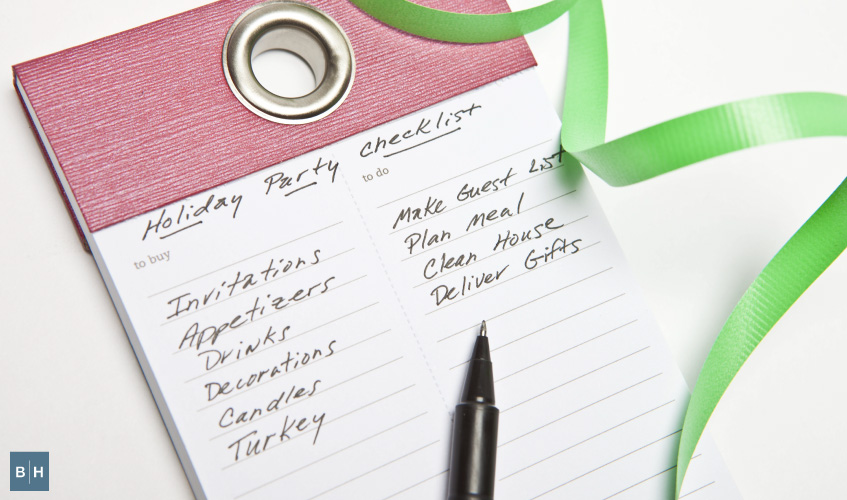 Holiday Party checklist
to buy
Invitations
Appetizers
Drinks
Decorations
Candles
Turkey
to do
Make Guest List
Plan Meal
Clean House
Deliver Gifts
B|H